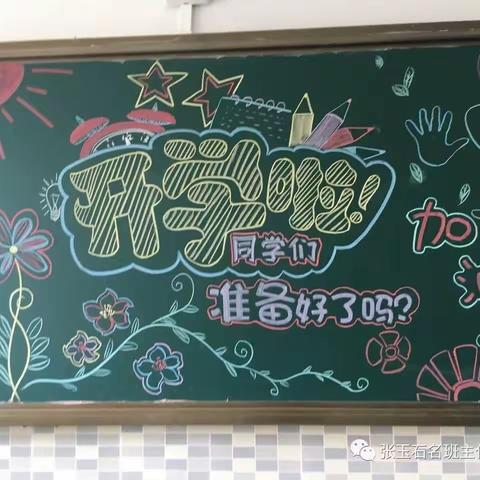 开学啦!
同学们
准备好了吗?
加
张玉石名班主任